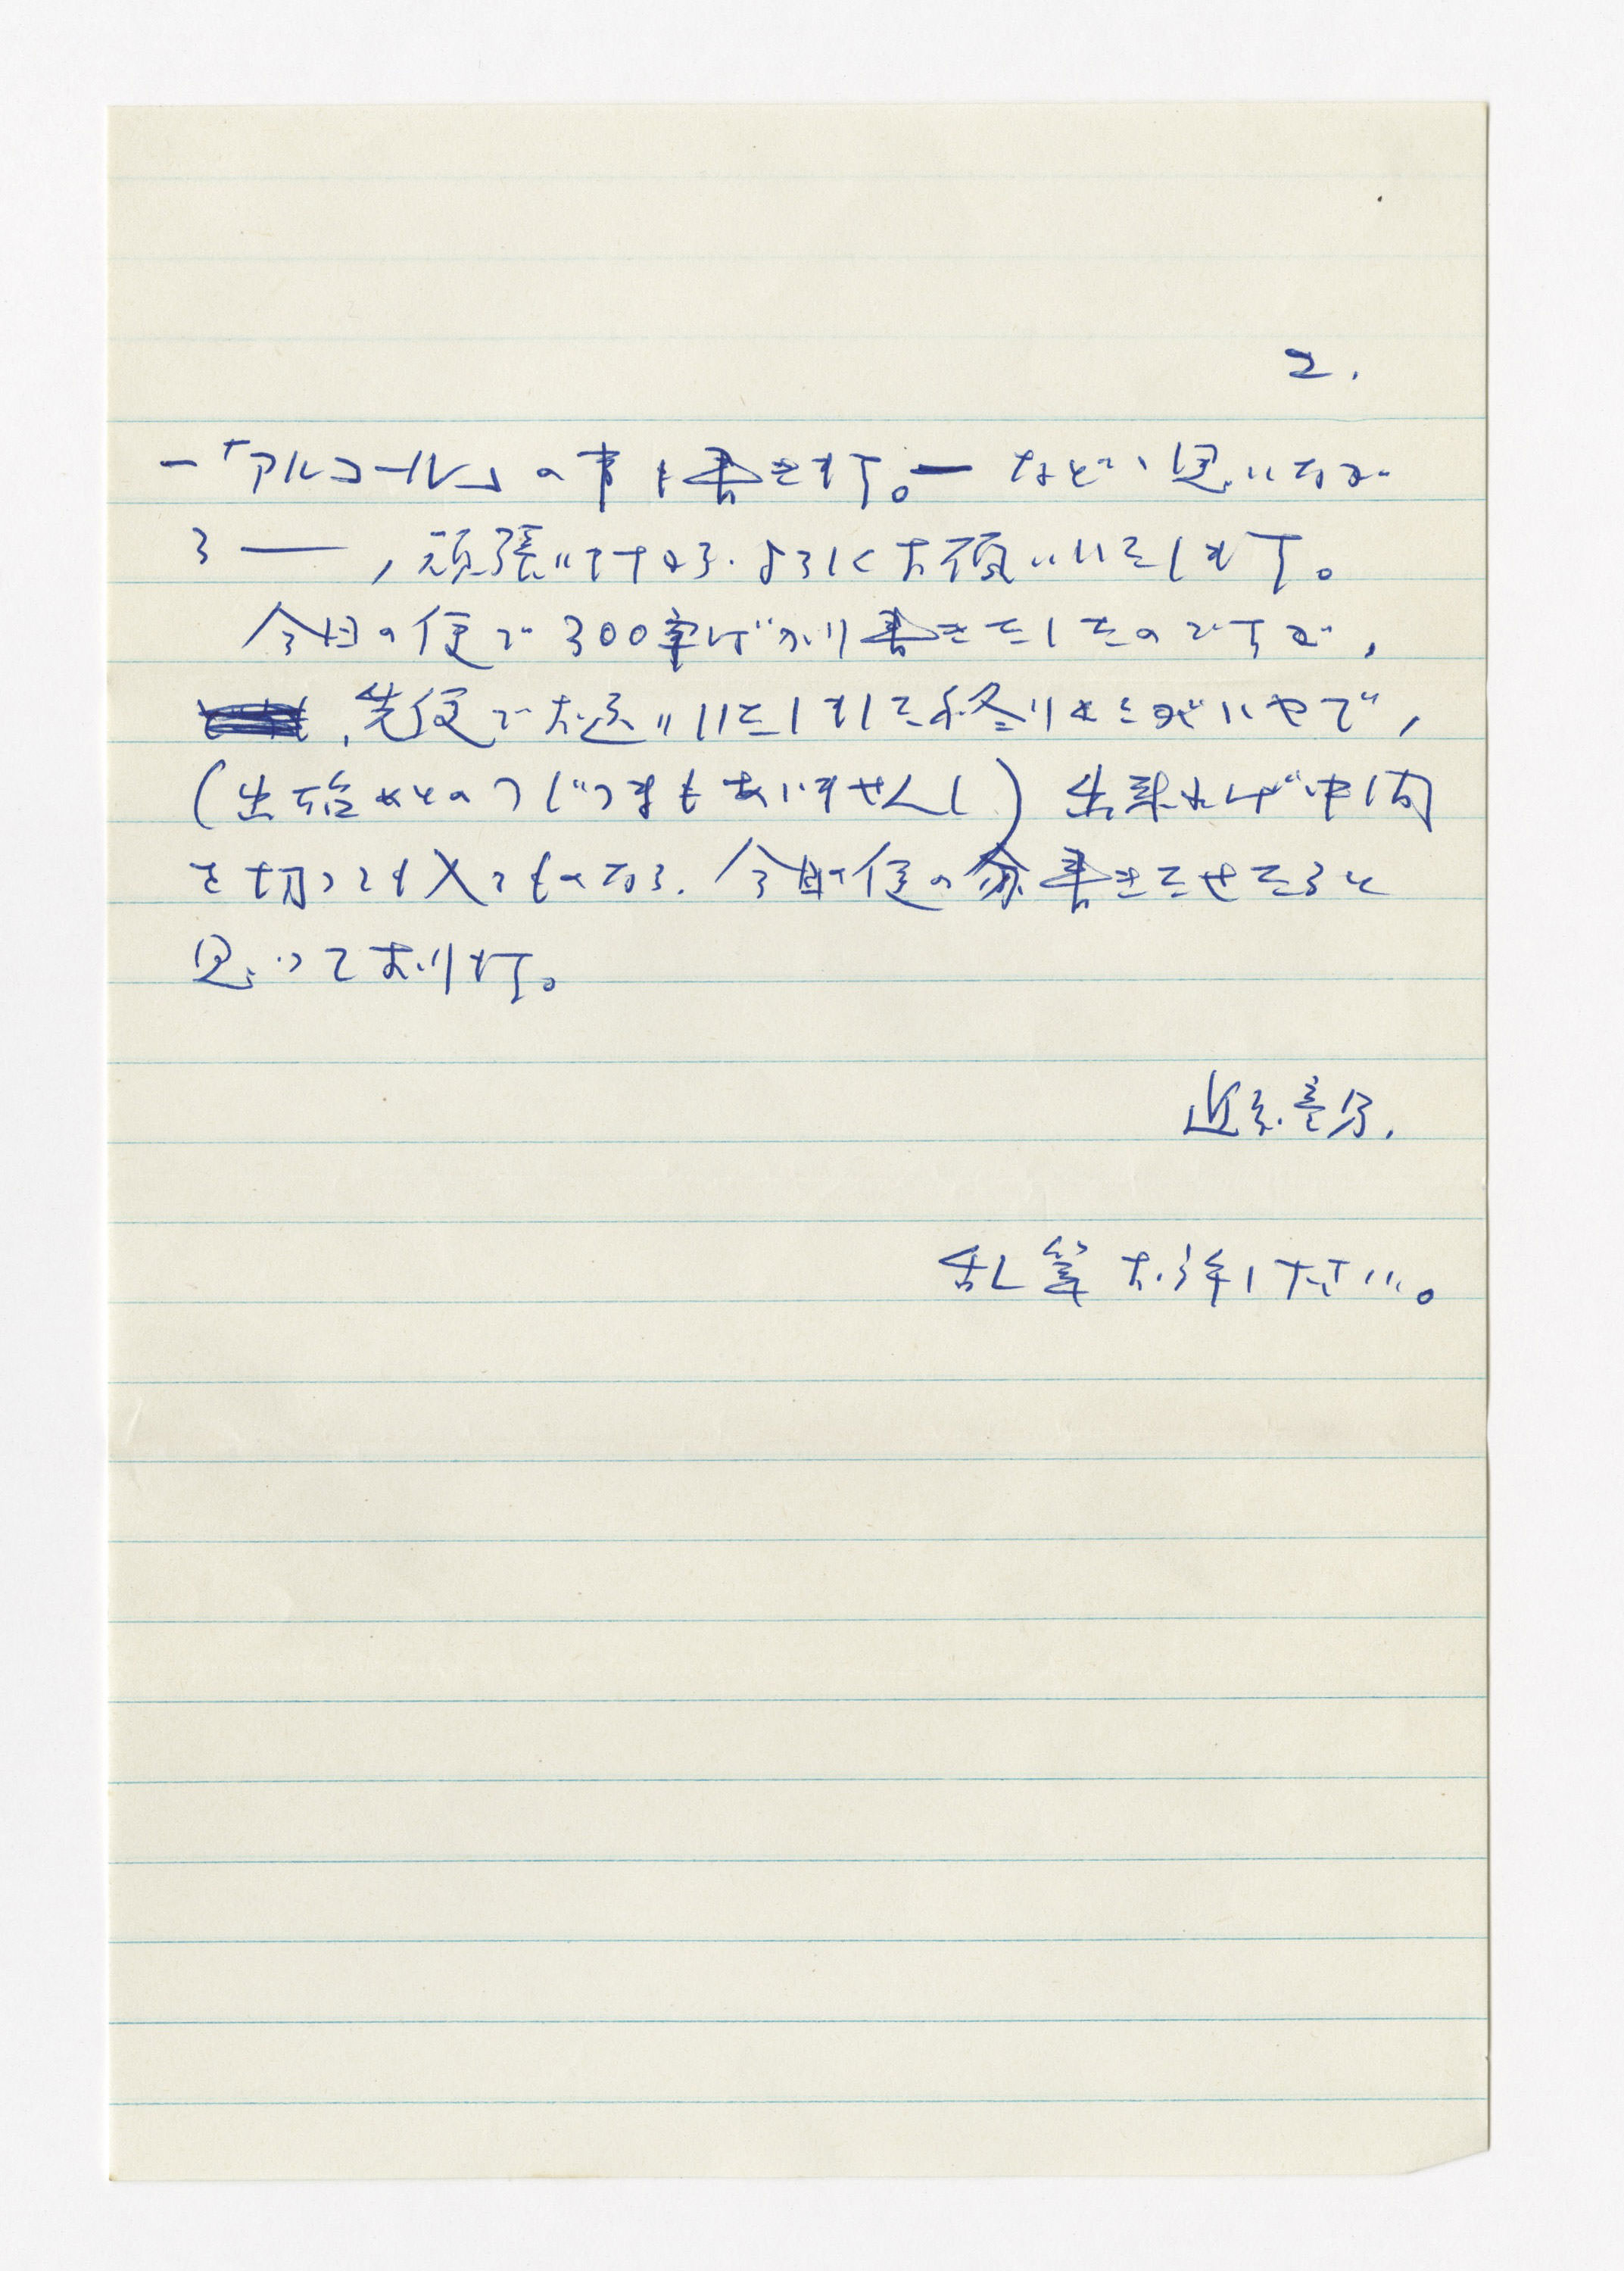 2.
ー「アルコール」の事も書きます。ー などと思いなが
ら ——,頑張いてすから.よろしくお願いいたします。
今日の便で300字ばかり書きたしたのですが,
先便でお送りいたしました終りのとこがいやで,
(出始めとのつじつまもあいませんし)出来れば中間
を切っても入るものなら.今日の便の分書きたせたらと
思っております。
近藤
乱筆お許し下さい。